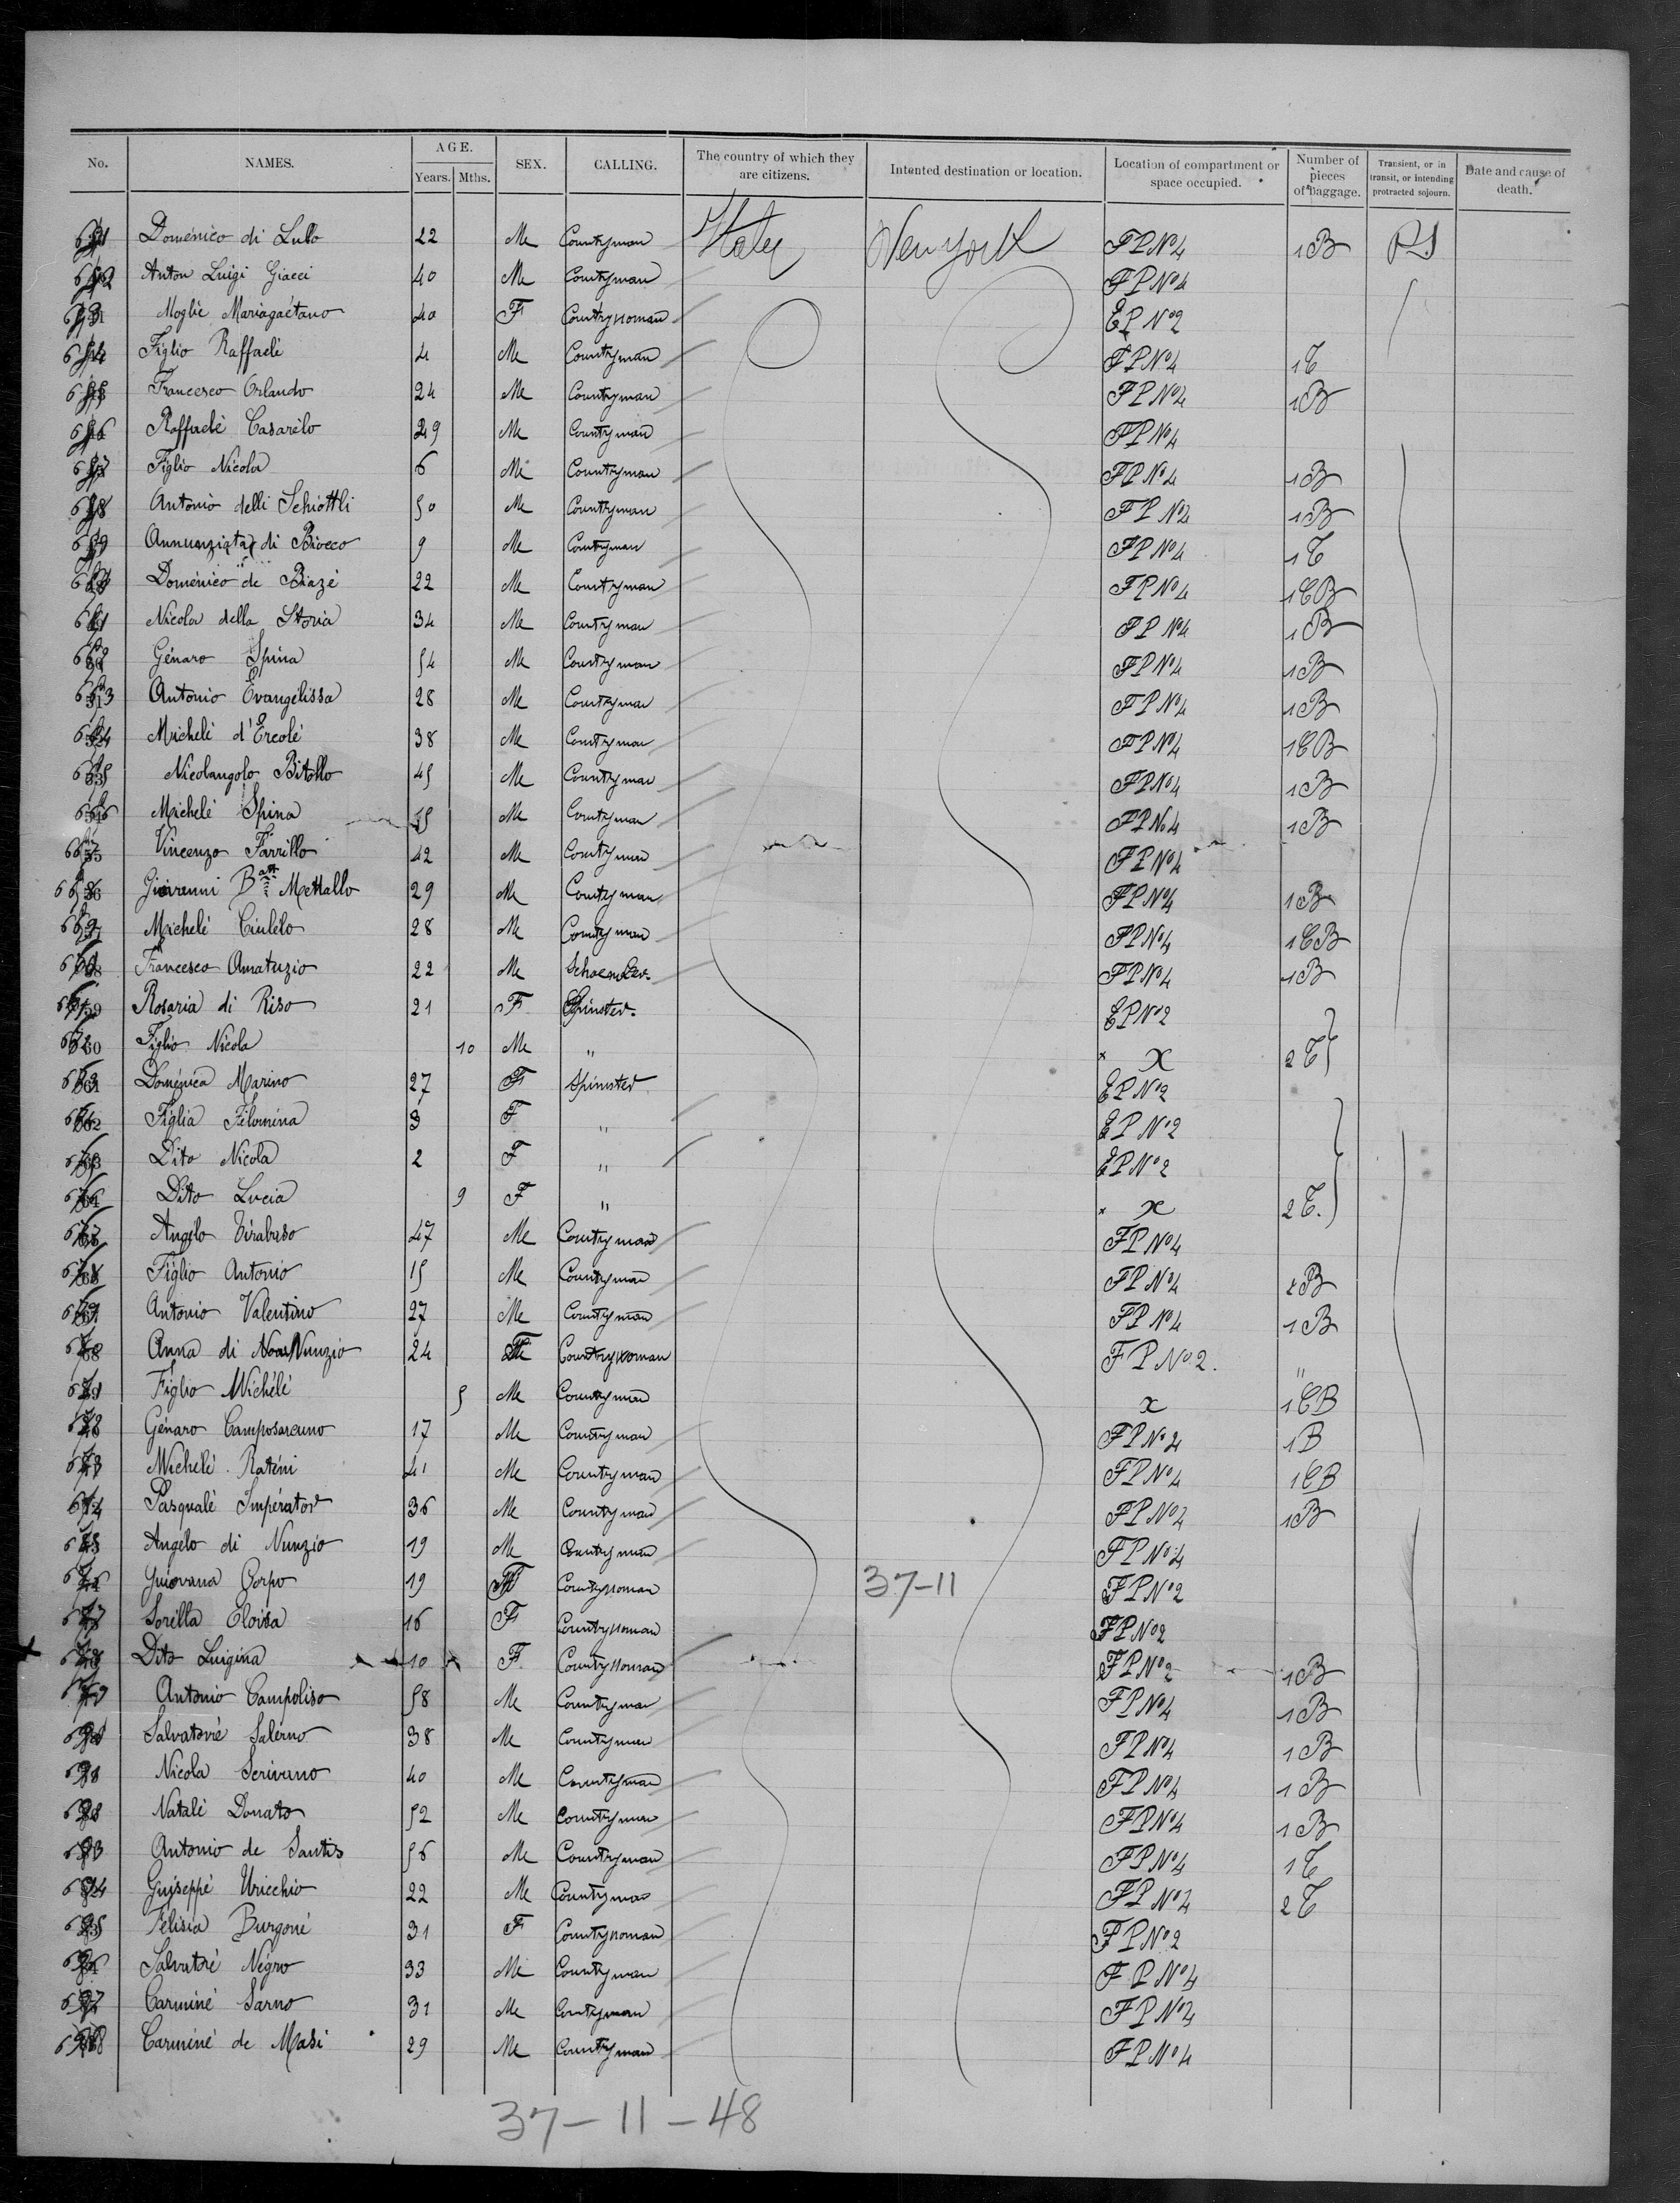 No. NAMES. AGE. Years. Mths. SEX. CALLING. The country of which they are citizens. Intented destination or location. Location of compartment or space occupied. Number of pieces of baggage. Transient, or in transit, or intending protracted sojourn. Date and cause of death.
Doménico di Lullo 22 Me Countryman Italy New York FP No 4 1B PS
Anton Luigi Giacci 40 Me Countryman FP No 4
Moglie Mariagaétano 40 F Countrywoman EP No 2
Figlio Raffaelé 4 Me Countryman FP No 4 1C
Francesco Orlando 24 Me Countryman FP No 4 1B
Raffaelé Casarélo 29 Me Countryman FP No 4
Figlio Nicola 6 Me Countryman FP No 4 1B
Antonio delli Schiottli 50 Me Countryman FP No 4 1B
Annunziata di Biocco 9 Me Countryman FP No 4 1C
Doménico de Biazé 22 Me Countryman FP No 4 1CB
Nicola della Storia 34 Me Countryman FP No 4 1B
Génaro Spina 54 Me Countryman FP No 4 1B
Antonio Evangélissa 28 Me Countryman FP No 4 1B
Michelé d'Ercolé 38 Me Countryman FP No 4 1CB
Nicolangolo Bitollo 45 Me Countryman FP No 4 1B
Michelé Spina Me Countryman FP No 4 1B
Vincenzo Farrillo 42 Me Countryman FP No 4
Giovanni Batt Mettallo 29 Me Countryman FP No 4 1B
Michelé Ciulélo 28 Me Countryman FP No 4 1CB
Francesco Amatuzio 22 Me FP No 4 1B
Rosaria di Riso 21 F Spinster EP No 2
Figlio Nicola 10 Me " x 2C
Doménica Marino 27 F Spinster EP No 2
Figlia Filomina 3 F " EP No 2
Dito Nicola 2 F " EP No 2
Dito Lucia 9 F " x 2C.
Angélo Tirabaso 47 Me Countryman FP No 4
Figlio Antonio 15 Me Countryman FP No 4 B
Antonio Valentino 27 Me Countryman FP No 4 1B
Anna di Nunzio 24 F Countrywoman FP No 2. "
Figlio Michélé 5 Me Countryman x 1CB
Génaro Camposarcuno 17 Me Countryman FP No 4 1B
Michelé Raténi 41 Me Countryman FP No 4 1CB
Pasqualé Impérator 36 Me Countryman FP No 4 1B
Angélo di Nunzio 19 Me Countryman FP No 4
Guiovana Corpo 19 F Countrywoman 37-11 FP No 2
Sorélla Eloisa 16 F Countrywoman FP No 2
Dito Luigina 10 F Countrywoman FP No 2 1B
Antonio Campoliso 58 Me Countryman FP No 4 1B
Salvatoré Salérno 38 Me Countryman FP No 4 1B
Nicola Scrivano 40 Me Countryman FP No 4 1B
Natalé Donato 52 Me Countryman FP No 4 1B
Antonio de Santis 56 Me Countryman FP No 4 1C
Guiseppé Uricchio 22 Me Countryman FP No 4 2C
Félisia Burgoné 31 F Countrywoman FP No 2
Salvatoré Négro 33 Me Countryman FP No 4
Carminé Sarno 31 Me Countryman FP No 4
Carminé de Masi 29 Me Countryman FP No 4
37-11-48